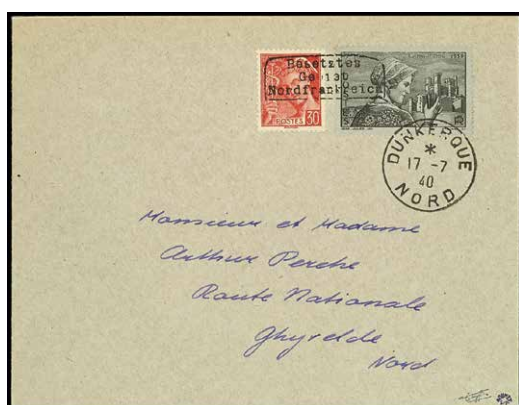 Besetztes
Gebiet
Nordfrankreich
POSTES 30
DUNKERQUE
*
17 -7
40
NORD
Monsieur et Madame
Arthur Perche
Route Nationale
Ghyvelde
Nord